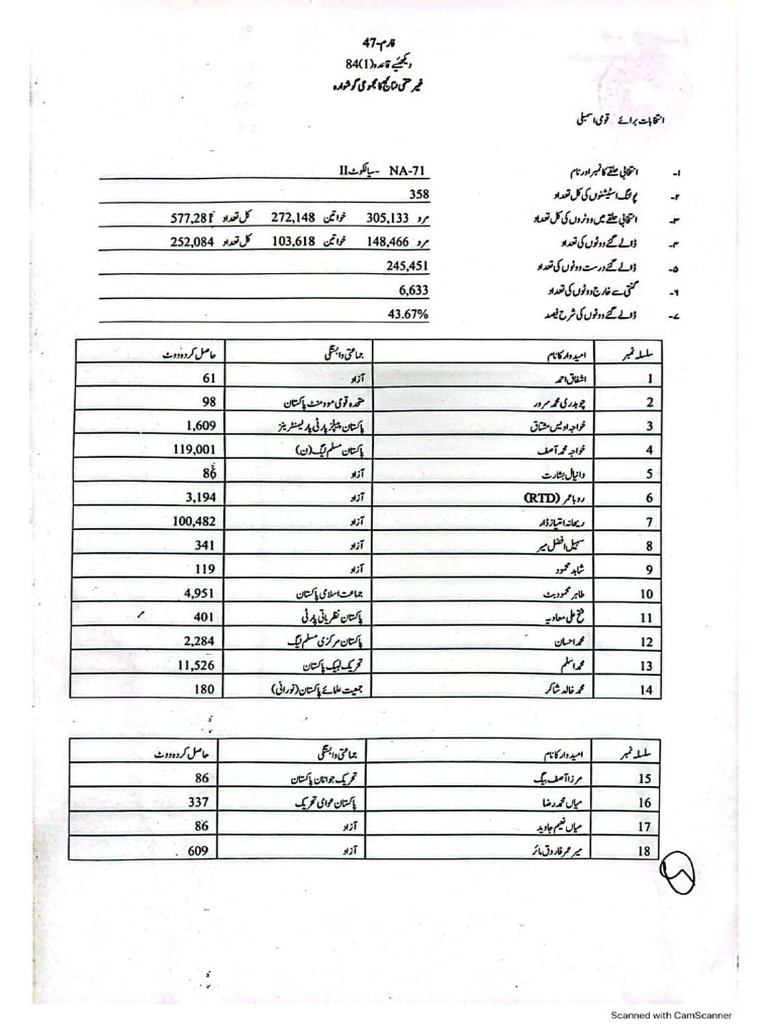 فارم-47
دیکھئیے قاعدہ (1)84
غیر حتمی نتائج کا مجموعی گوشوارہ
انتخابات برائے قومی اسمبلی
۱- انتخابی حلقے کا نمبر اور نام NA-71 -سیالکوٹ II
۲- پولنگ اسٹیشنوں کی کل تعداد 358
۳- انتخابی حلقے میں ووٹروں کی کل تعداد مرد 305,133 خواتین 272,148 کل تعداد 577,281
۴- ڈالے گئے ووٹوں کی تعداد مرد 148,466 خواتین 103,618 کل تعداد 252,084
۵- ڈالے گئے درست ووٹوں کی تعداد 245,451
۶- گنتی سے خارج ووٹوں کی تعداد 6,633
۷- ڈالے گئے ووٹوں کی شرح فیصد 43.67%
سلسلہ نمبر امیدوار کا نام جماعتی وابستگی حاصل کردہ ووٹ
1 اشفاق احمد آزاد 61
2 چوہدری محمد سرور متحدہ قومی موومنٹ پاکستان 98
3 خواجہ اویس مشتاق پاکستان پیپلز پارٹی پارلیمنٹرینز 1,609
4 خواجہ محمد آصف پاکستان مسلم لیگ (ن) 119,001
5 دانیال بشارت آزاد 86
6 روبا عمر (RTD) آزاد 3,194
7 ریحانہ امتیاز ڈار آزاد 100,482
8 سہیل افضل میر آزاد 341
9 شاہد محمود آزاد 119
10 طاہر محمود بٹ جماعت اسلامی پاکستان 4,951
11 فتح علی معاویہ پاکستان نظریاتی پارٹی 401
12 محمد احسان پاکستان مرکزی مسلم لیگ 2,284
13 محمد اسلم تحریک لبیک پاکستان 11,526
14 محمد خالد شاکر جمعیت علمائے پاکستان (نورانی) 180
سلسلہ نمبر امیدوار کا نام جماعتی وابستگی حاصل کردہ ووٹ
15 مرزا آصف بیگ تحریک جوانان پاکستان 86
16 میاں محمد رضا پاکستان عوامی تحریک 337
17 میاں نعیم جاوید آزاد 86
18 میر عمر فاروق مائر آزاد 609
Scanned with CamScanner